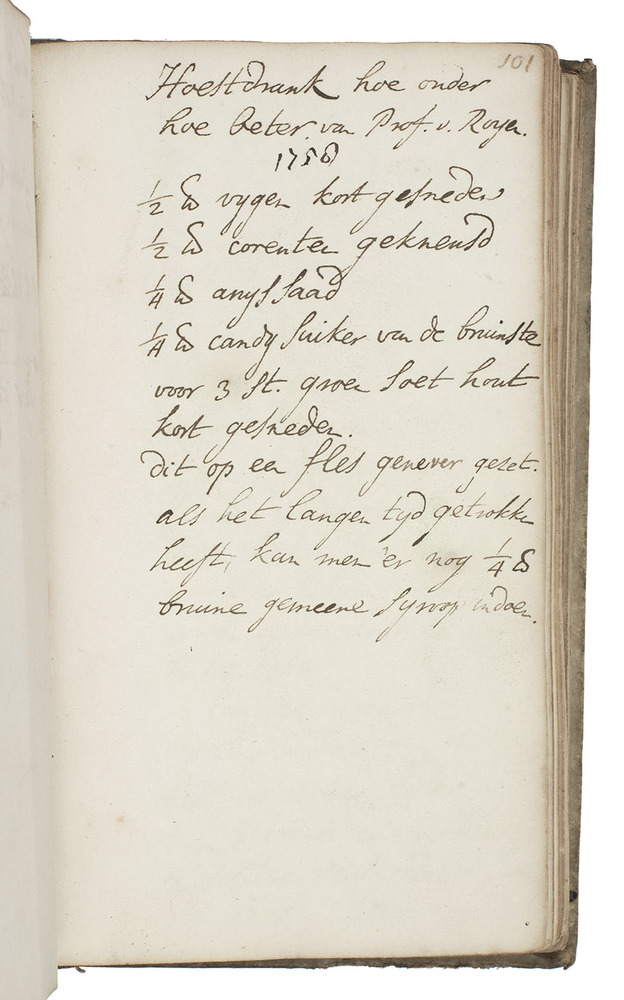 101
Hoestdrank hoe onder
hoe beter van Prof. v. Royen.
1758
½ ℔ vygen kort gesneden
½ ℔ corenten gekneusd
¼ ℔ anyssaad
¼ ℔ candy suiker van de bruinste
voor 3 St. groen soet hout
kort gesneden.
dit op een fles genever gezet.
als het langen tyd getrokken
heeft, kan men 'er nog ¼ ℔
bruine gemeene Syroop indoen.